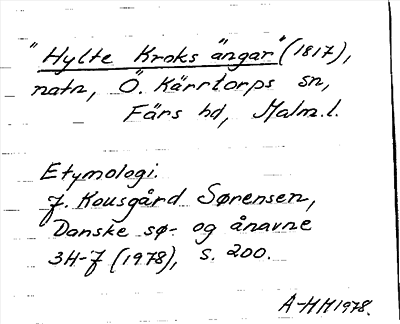 "Hylte Kroks ängar" (1817),
natn, Ö. Kärrtorps sn,
Färs hd, Malm.l.
Etymologi.
J. Kousgård Sørensen,
Danske sø- og ånavne
3H-J (1978), s. 200.
A-HH1978.